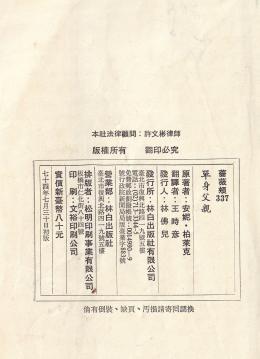 本社法律顧問：許文彬律師
版權所有　翻印必究
薔薇頰 337
單身父親
原著者：安妮·柏萊克
翻譯者：王時彥
發行人：林佛兒
發行所：林白出版社有限公司
營業部：林白出版社
排版者：松明印刷事業有限公司
印刷：文裕印刷公司
實價新臺幣八十元
七十四年七月三十日初版
倘有倒裝、缺頁、污損請寄回調換